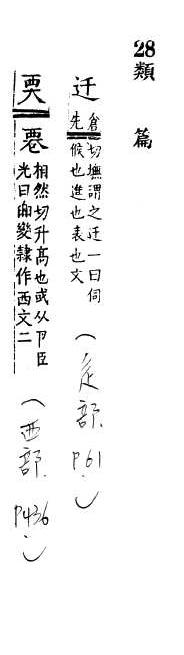 28類篇
迁 倉先切撫謂之迁一曰伺
候也進也表也文
(辵部 P61.)
䙴 相然切升高也或从卩臣
光曰凾變隸作西文二
(西部 P436.)